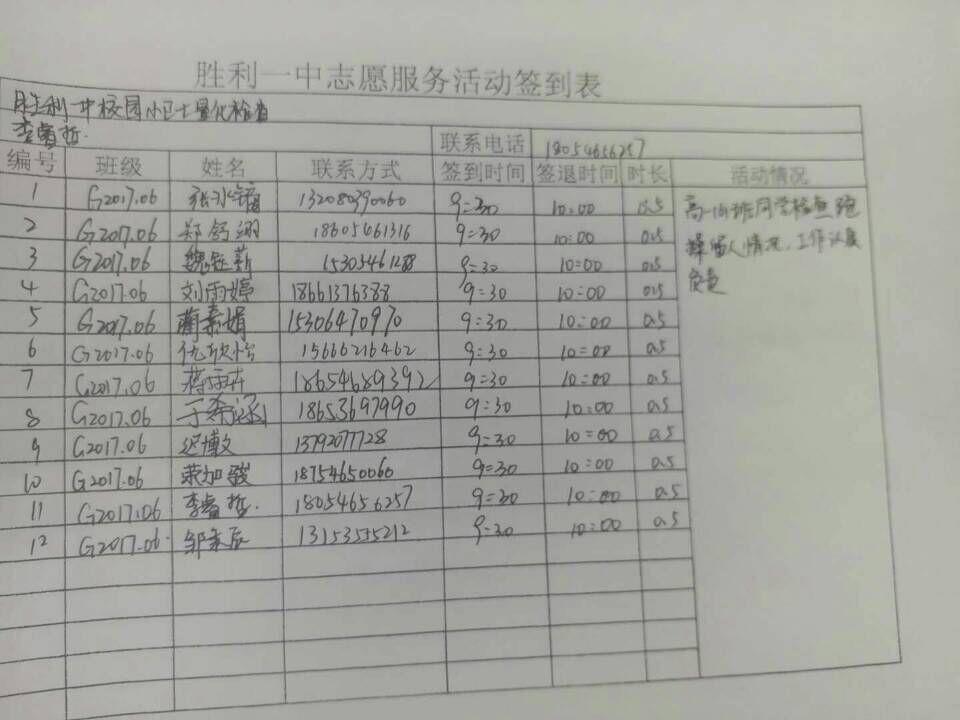 胜利一中志愿服务活动签到表
胜利一中校园小卫士量化检查
李睿哲. 联系电话 18054656257
编号 班级 姓名 联系方式 签到时间 签退时间 时长 活动情况
1 G2017.06 132080390060 9:30 10:00 0.5 高一6班同学检查跑
2 G2017.06 郑舒翊 18605461316 9:30 10:00 0.5 操留人情况,工作认真
3 G2017.06 魏钰薪 15305461288 9:30 10:00 0.5 负责
4 G2017.06 刘雨婷 18661376388 9:30 10:00 0.5
5 G2017.06 蔺素娟 15306470970 9:30 10:00 0.5
6 G2017.06 仇欣怡 15666216462 9:30 10:00 0.5
7 G2017.06 蒋雨卉 18654689392 9:30 10:00 0.5
8 G2017.06 于希涵 18653697990 9:30 10:00 0.5
9 G2017.06 迟博文 13792077728 9:30 10:00 0.5
10 G2017.06 荣加骏 18754650060 9:30 10:00 0.5
11 G2017.06 李睿哲. 18054656257 9:30 10:00 0.5
12 G2017.06. 邹秉辰 13153555212 9:30 10:00 0.5